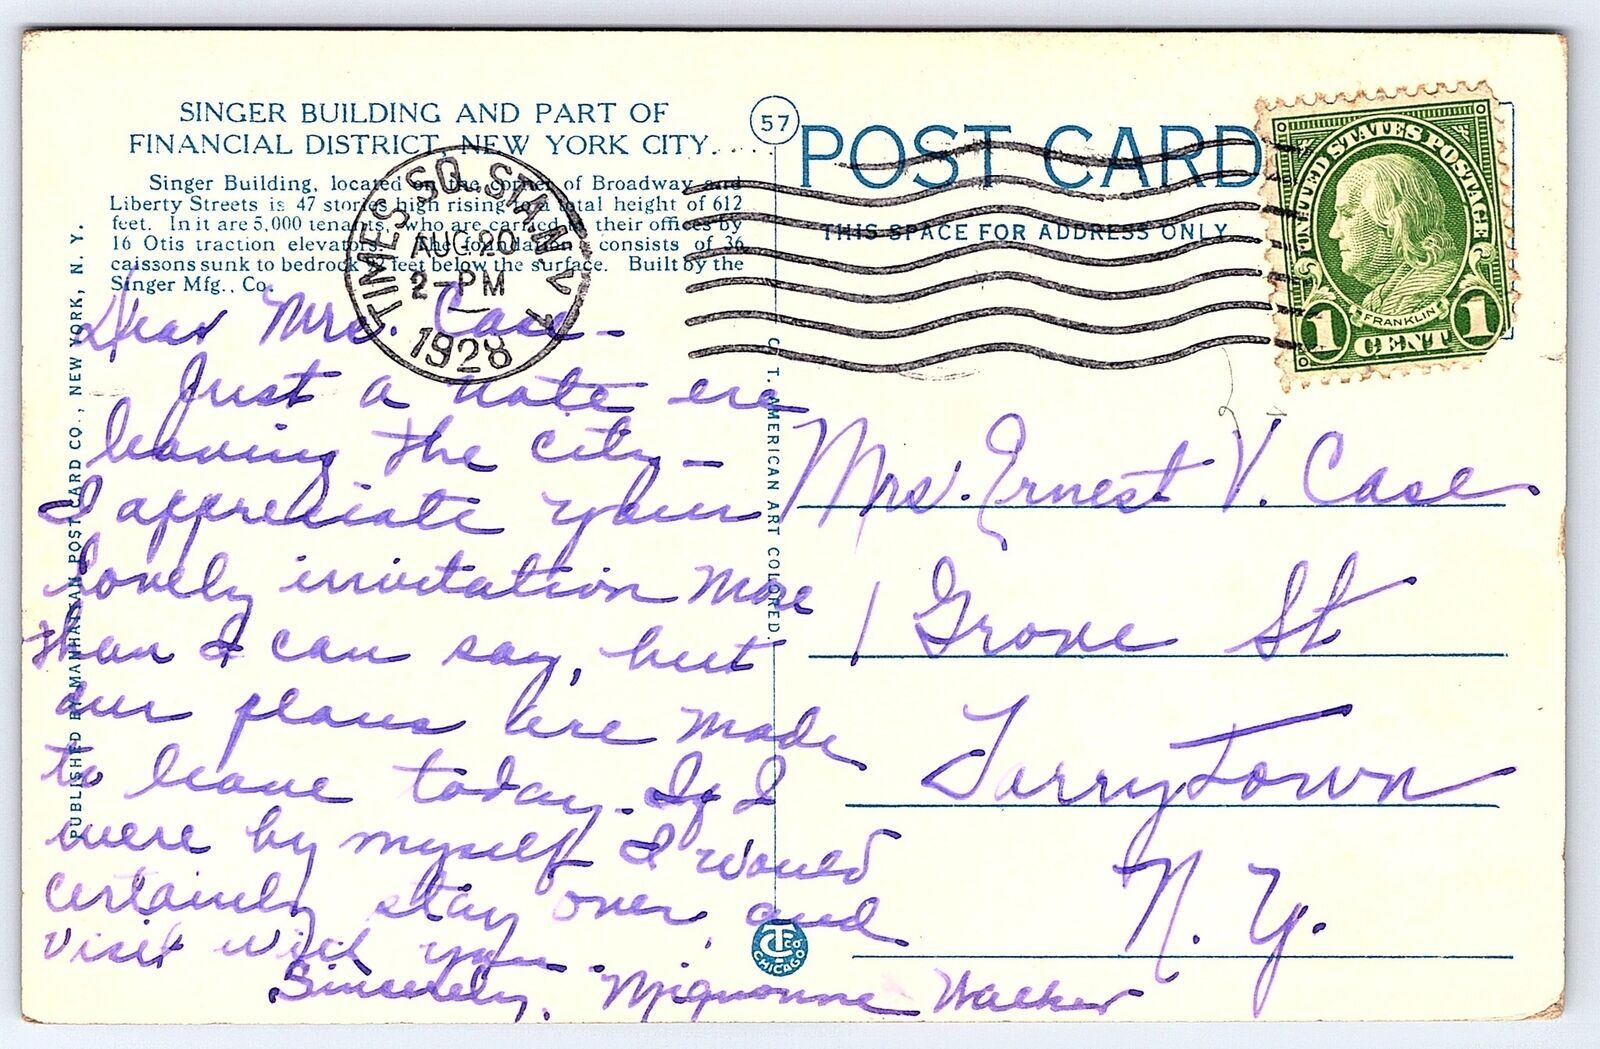 SINGER BUILDING AND PART OF
FINANCIAL DISTRICT, NEW YORK CITY.
Singer Building, located on the corner of Broadway and
Liberty Streets is 47 stories high rising to a total height of 612
feet. In it are 5,000 tenants, who are carried to their offices by
16 Otis traction elevators. The foundation consists of 36
caissons sunk to bedrock feet below the surface. Built by the
Singer Mfg., Co.
PUBLISHED BY MANHATTAN POST CARD CO., NEW YORK, N. Y.
Dear Mrs. Case –
Just a note ere
leaving the city –
I appreciate your
lovely invitation more
than I can say, but
our plans are made
to leave today. If I
were by myself I would
certainly stay over and
visit with you.
Sincerely, Mignonne Walker
TIMES SQ. STA. N.Y.
AUG 20
2-PM
1928
57
POST CARD
THIS SPACE FOR ADDRESS ONLY
C. T. AMERICAN ART COLORED.
CT CO. CHICAGO
UNITED STATES POSTAGE
FRANKLIN
1 CENT 1
Mrs. Ernest V. Case
1 Grove St
Tarrytown
N. Y.